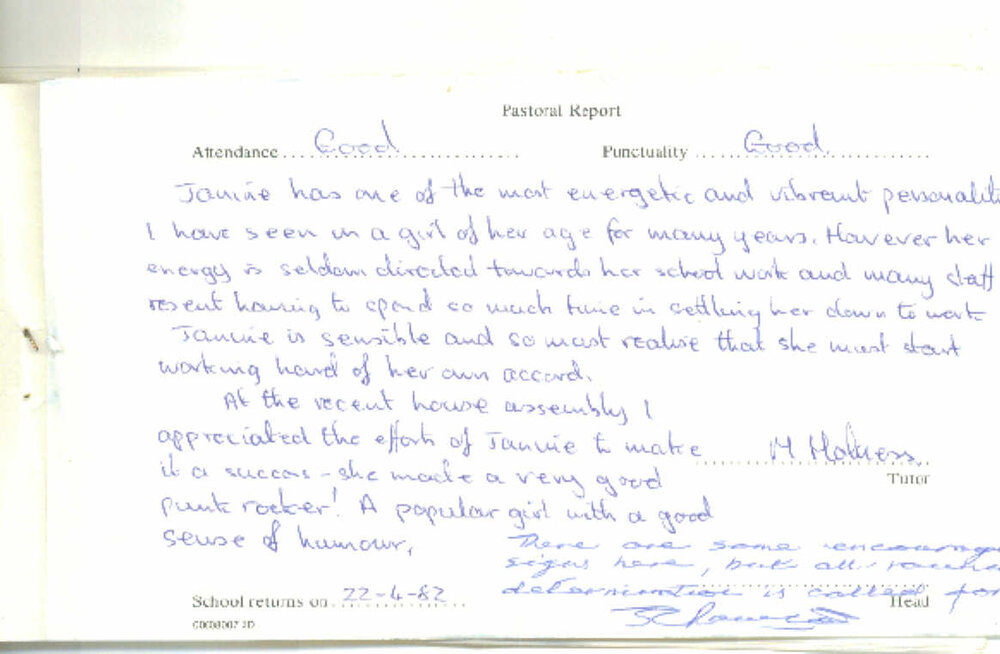 Pastoral Report
Attendance .... Good .... Punctuality .... Good.
Janine has one of the most energetic and vibrant personalit
I have seen in a girl of her age for many years. However her
energy is seldom directed towards her school work and many staff
resent having to spend so much time in settling her down to work
Janine is sensible and so must realise that she must start
working hard of her own accord.
At the recent house assembly I
appreciated the efforts of Janine to make
it a success - she made a very good
punk rocker! A popular girl with a good
sense of humour,
M Holness
Tutor
There are some encourag
signs here, but all
determination is called for
Head
School returns on 22-4-82